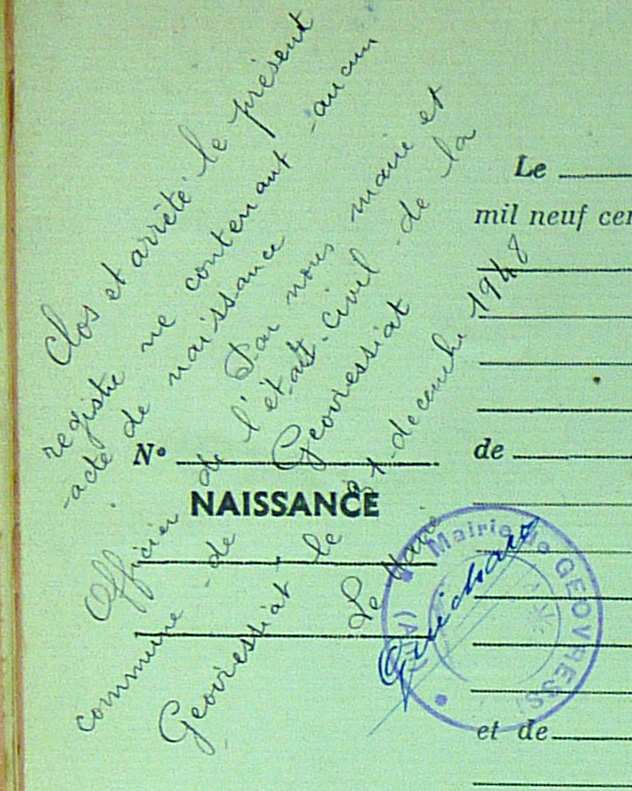 Clos et arrêté le présent
registre ne contenant aucun
acte de naissance
Par nous maire et
Officier de l'état-civil de la
commune de Geovressiat
Geovressiat le 31 decembre 1948
Le Maire
Guichard
Mairie de GEOVRESSI
(AIN)
N°
NAISSANCE
Le
mil neuf cen
de
et de